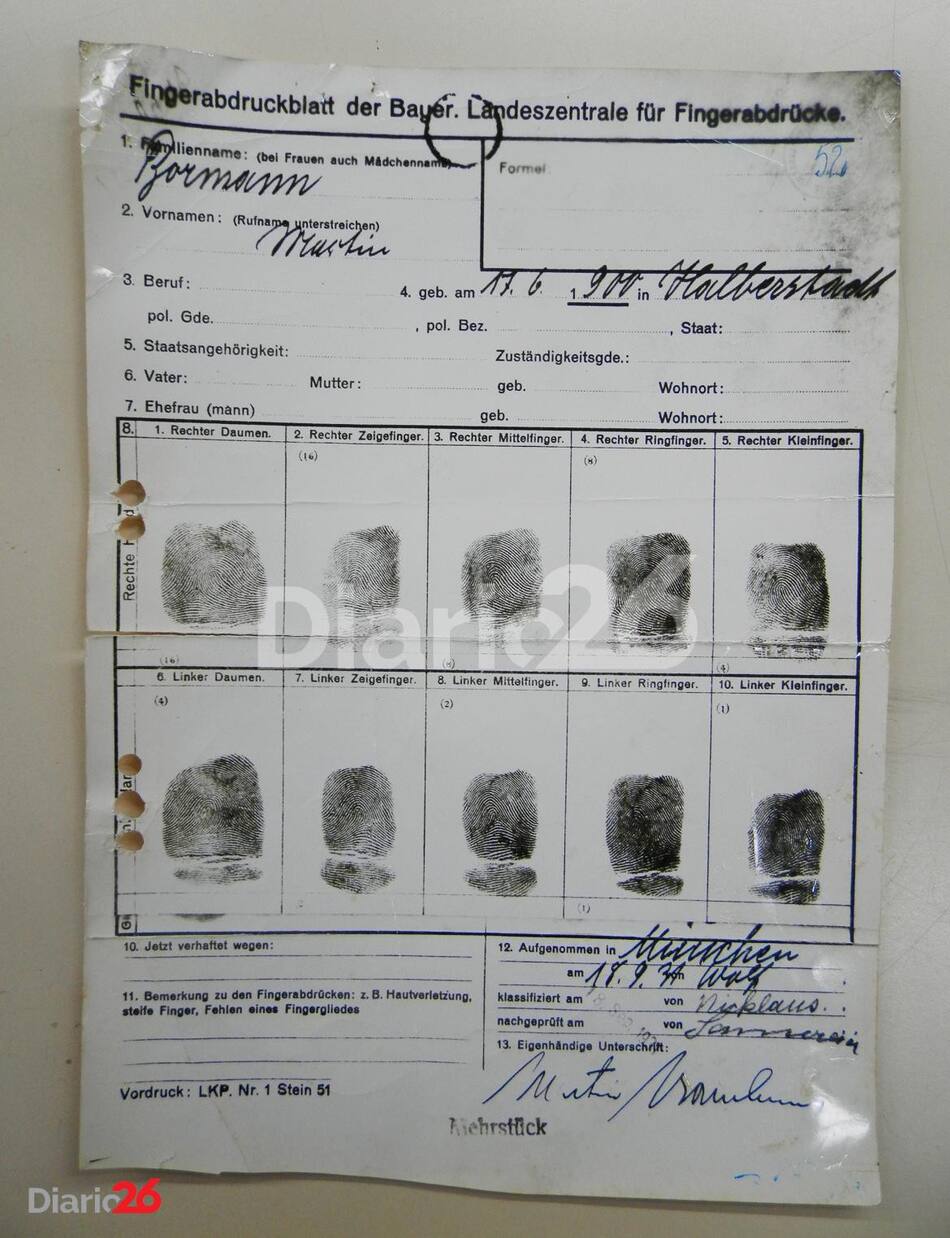 Fingerabdruckblatt der Bayer. Landeszentrale für Fingerabdrücke.
1. Familienname: (bei Frauen auch Mädchenname)
Bormann
Formel
52
2. Vornamen: (Rufname unterstreichen)
Martin
3. Beruf:
4. geb. am 17. 6. 1 900 in Halberstadt
pol. Gde. , pol. Bez. , Staat:
5. Staatsangehörigkeit: Zuständigkeitsgde.:
6. Vater: Mutter: geb. Wohnort:
7. Ehefrau (mann) geb. Wohnort:
8. 1. Rechter Daumen. 2. Rechter Zeigefinger. 3. Rechter Mittelfinger. 4. Rechter Ringfinger. 5. Rechter Kleinfinger.
(16) (8)
Rechte
Diario26
(16) (8) (4)
6. Linker Daumen. 7. Linker Zeigefinger. 8. Linker Mittelfinger. 9. Linker Ringfinger. 10. Linker Kleinfinger.
(4) (2) (1)
(1)
10. Jetzt verhaftet wegen:
11. Bemerkung zu den Fingerabdrücken: z. B. Hautverletzung,
steife Finger, Fehlen eines Fingergliedes
12. Aufgenommen in München
am 18. 9. 31 von Wolf
klassifiziert am von Nicklaus.
nachgeprüft am von
13. Eigenhändige Unterschrift:
Martin Bormann
Vordruck: LKP. Nr. 1 Stein 51
Mehrstück
Diario26